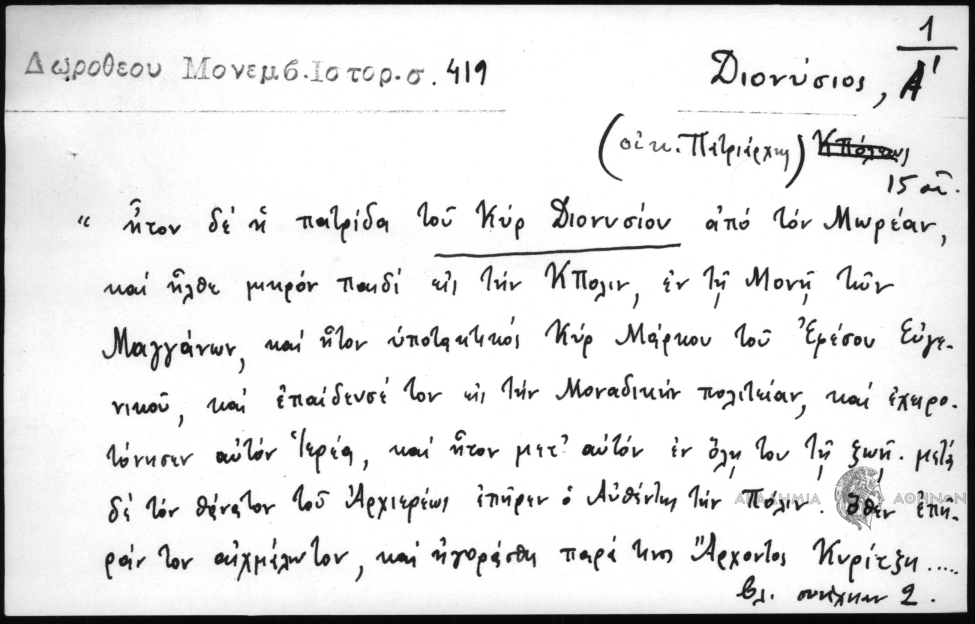 1
Δωροθεου Μονεμβ.Ιστορ.σ. 419
Διονύσιος, Α'
(οἰκ. Πατριάρχης) Κπόλεως
15 αἰ.
“ ἦτον δέ ἡ πατρίδα τοῦ Κύρ Διονυσίου ἀπό τόν Μωρέαν,
καί ἦλθε μικρόν παιδί εἰς τήν Κπολιν, ἐν τῇ Μονῇ τῶν
Μαγγάνων, καί ἦτον ὑποτακτικός Κύρ Μάρκου τοῦ Ἐφέσου Εὐγε-
νικοῦ, καί ἐπαίδευσέ τον εἰς τήν Μοναδικήν πολιτείαν, καί ἐχειρο-
τόνησεν αὐτόν Ἱερέα, καί ἦτον μετ' αὐτόν ἐν ὅλῃ του τῇ ζωῇ. μετά
δέ τόν θάνατον τοῦ Ἀρχιερέως ἐπῆρεν ὁ Αὐθέντης τήν Πόλιν. Ὅθεν ἐπῆ-
ράν τον αἰχμάλωτον, καί ἠγοράσθη παρά τινος Ἄρχοντος Κυρίτζη.....
βλ. συνέχειαν 2.
ΑΚΑΔΗΜΙΑ ΑΘΗΝΩΝ